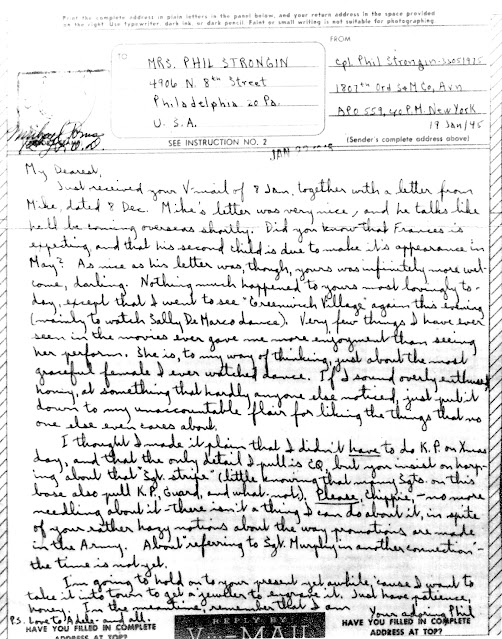 Print the complete address in plain letters in the panel below, and your return address in the space provided
on the right. Use typewriter, dark ink, or dark pencil. Faint or small writing is not suitable for photographing.
TO
MRS. PHIL STRONGIN
4906 N. 8th Street
Philadelphia 20 Pa.
U. S. A.
FROM
Cpl Phil Strongin-32051925
1807th Ord S&M Co, Avn
APO 559, c/o P.M. New York
19 Jan/45
(Sender's complete address above)
SEE INSTRUCTION NO. 2
My Dearest,
Just received your V-mail of 8 Jan, together with a letter from
Mike, dated 8 Dec. Mike's letter was very nice, and he talks like
he'll be coming overseas shortly. Did you know that Frances is
expecting and that his second child is due to make it's appearance in
May? As nice as his letter was though, yours was infinitely more wel-
come, darling. Nothing much happened to yours most lovingly to-
day, except that I went to see "Greenwich Village" again this evening
(mainly to watch Sally DeMarco dance). Very few things I have ever
seen in the movies ever gave me more enjoyment than seeing
her perform. She is, to my way of thinking, just about the most
graceful female I ever watched dance. If I sound overly enthused
honey, at something that hardly anyone else noticed, just put it
down to my unaccountable flair for liking the things that no
one else even cares about.
I thought I made it plain that I didn't have to do K.P. on Xmas
day, and that the only detail I pull is CQ, but you insist on harp-
ing about that "Sgt. stripe" (little knowing that many Sgts. on this
base also pull K.P., Guard, and what not). Please, Chippie, - no more
needling about it - there isn't a thing I can do about it, in spite
of your rather hazy notions about the way promotions are made
in the Army. About "referring to Sgt. Murphy in another connection" -
the time is not yet.
I'm going to hold on to your present yet awhile 'cause I want to
take it into town to get a jeweler to engrave it. Just have patience,
honey. In the meantime, remember that I am
Your adoring Phil
P.S. Love to Adele and all.
HAVE YOU FILLED IN COMPLETE
ADDRESS AT TOP?
REPLY BY
V-MAIL
HAVE YOU FILLED IN COMPLETE
ADDRESS AT TOP?